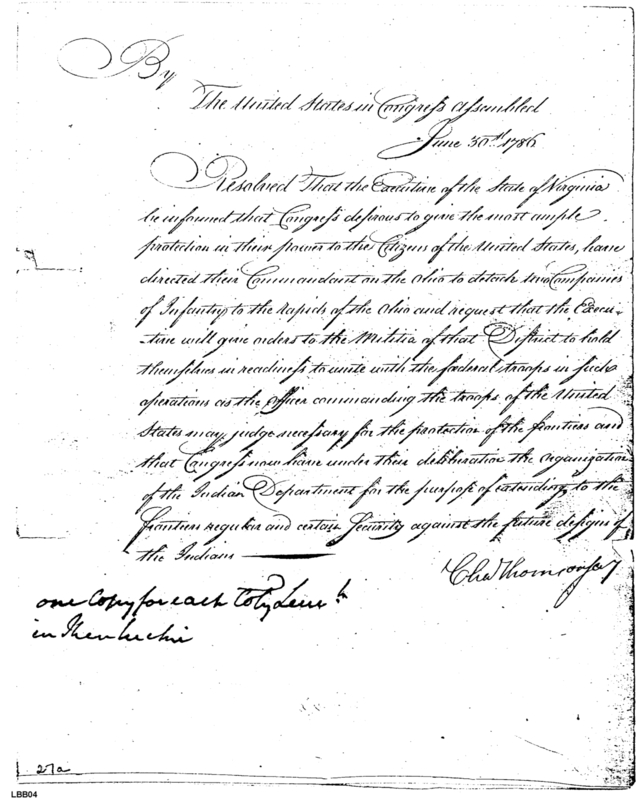 By
The United States in Congress assembled
June 30th 1786
Resolved That the Executive of the State of Virginia
be informed that Congress desirous to give the most ample
protection in their power to the Citizens of the United States, have
directed their Commandant on the Ohio to detach two Companies
of Infantry to the Rapids of the Ohio and request that the Execu-
tive will give orders to the Militia of that District to hold
themselves in readiness to unite with the foederal troops in such
operations as the officer commanding the troops of the United
States may judge necessary for the protection of the frontiers and
that Congress now have under their deliberation the organization
of the Indian Department for the purpose of extending to the
frontiers regular and certain Security against the future designs of
the Indians
Chas Thomson Secy
one Copy for each Coty Lieut
in Kentuckie
27a
LBB04